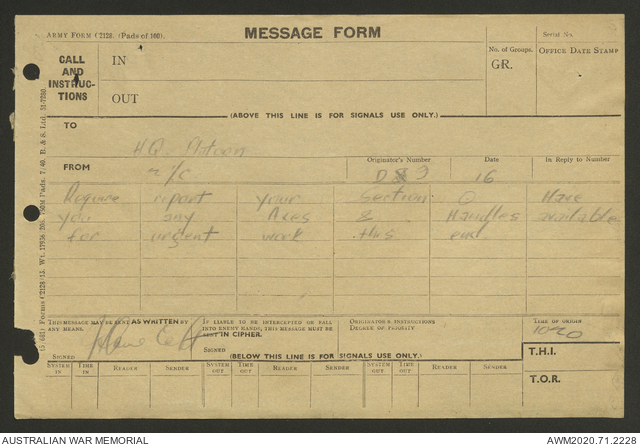 ARMY FORM C2128. (Pads of 100).
MESSAGE FORM
Serial No.
CALL AND INSTRUC-TIONS
IN
OUT
No. of Groups.
GR.
OFFICE DATE STAMP
(ABOVE THIS LINE IS FOR SIGNALS USE ONLY.)
TO
HQ. Platoon
FROM
Originator's Number
Date
In Reply to Number
16
Require report your Section O Have
you any Axes & Handles available
for urgent work this end
THIS MESSAGE MAY BE SENT AS WRITTEN BY ANY MEANS.
SIGNED
IF LIABLE TO BE INTERCEPTED OR FALL INTO ENEMY HANDS, THIS MESSAGE MUST BE SENT IN CIPHER.
SIGNED
ORIGINATOR'S INSTRUCTIONS
DEGREE OF PRIORITY
TIME OF ORIGIN
(BELOW THIS LINE IS FOR SIGNALS USE ONLY.)
T.H.I.
T.O.R.
SYSTEM IN
TIME IN
READER
SENDER
SYSTEM OUT
TIME OUT
READER
SENDER
SYSTEM OUT
TIME OUT
READER
SENDER
AUSTRALIAN WAR MEMORIAL
AWM2020.71.2228